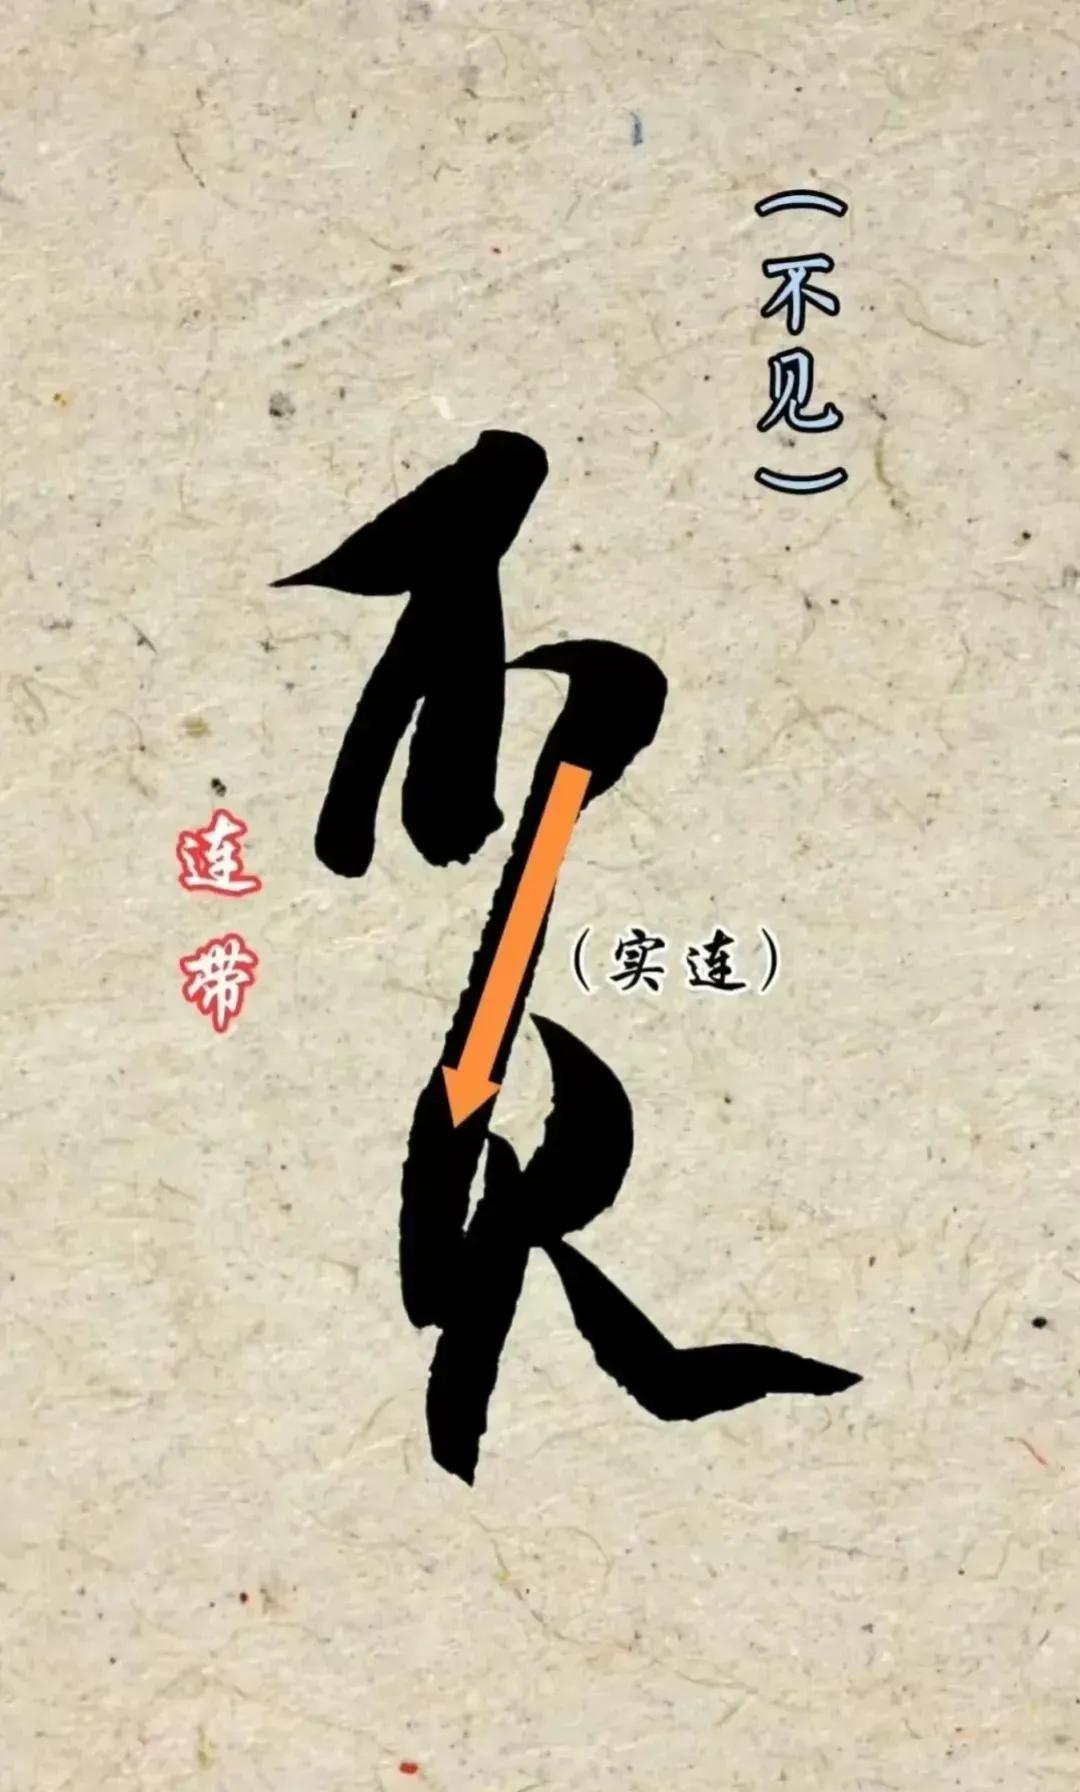 （不见）
不见
（实连）
连带